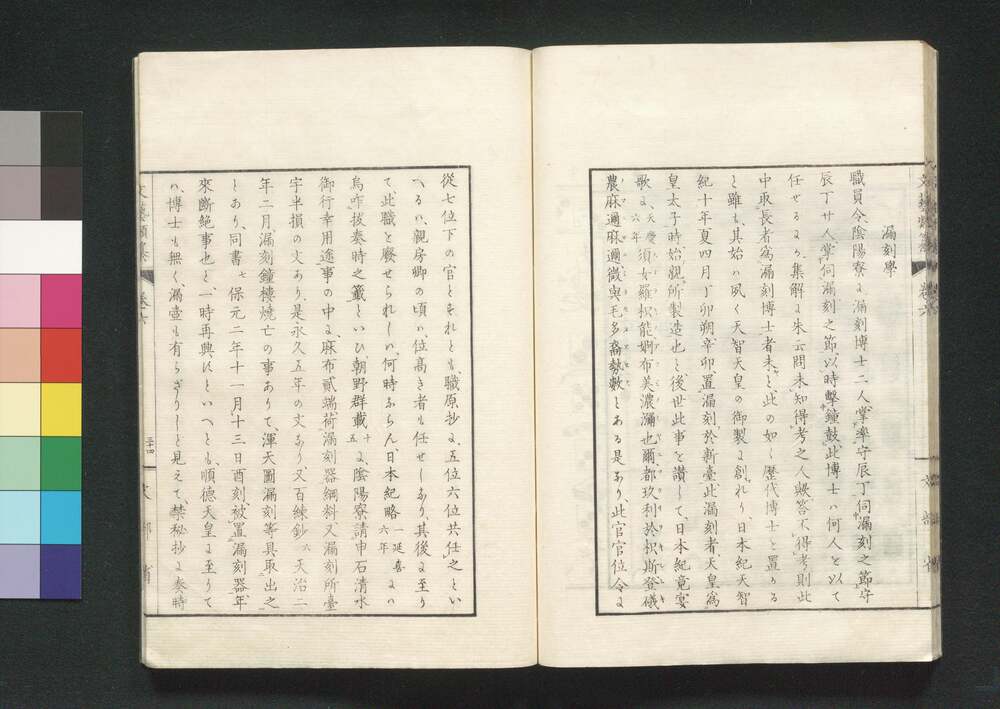 漏刻學
職員令陰陽寮ょ漏刻博士二人掌率守辰丁伺漏刻之節守
辰丁廿人掌伺漏刻之節以時擊鐘鼓此博士ハ何人と以て
任せるヲ集解ょ朱云問未知得考之人歟答不得考則此
中取長者爲漏刻博士者未と此の如く歷代博士と置かる
と雖も其始ハ夙く天智天皇の御製ょ創れり日本紀天智
紀十年夏四月丁卯朔辛卯置漏刻於新臺此漏刻者天皇爲
皇太子時始親所製造也と後世此事を讃して日本紀竟宴
歌ょ天慶六年須女羅枳能婀布美濃瀰也爾都玖利於枳斯登儀
農麻邇麻邇微與毛多裔勢數とある是あり此官官位令ょ
從七位下の官とそれとも職原抄ょ五位六位共任之とい
へるハ親房卿の頃ハ位高き者も任せしあり其後ょ至り
て此職と廢せられしハ何時ふらん日本紀略一延喜六年ょハ
烏咋拔奏時之籤といひ朝野群載十五ょ陰陽寮請申石清水
御行幸用途事の中ょ麻布貳端荷漏刻器綱料又漏刻所臺
宇半損の文あり是永久五年の文あり又百練鈔六天治二
年二月漏刻鐘樓燒亡の事ありて渾天圖漏刻等具取出之
とあり同書七保元二年十一月十三日酉刻被置漏刻器年
來斷絶事也と一時再興にといへとも順德天皇ょ至りて
ハ博士も無く漏壺も有らざりしと見えて禁秘抄ょ奏時
文藝類纂 卷六
三十四
文部省